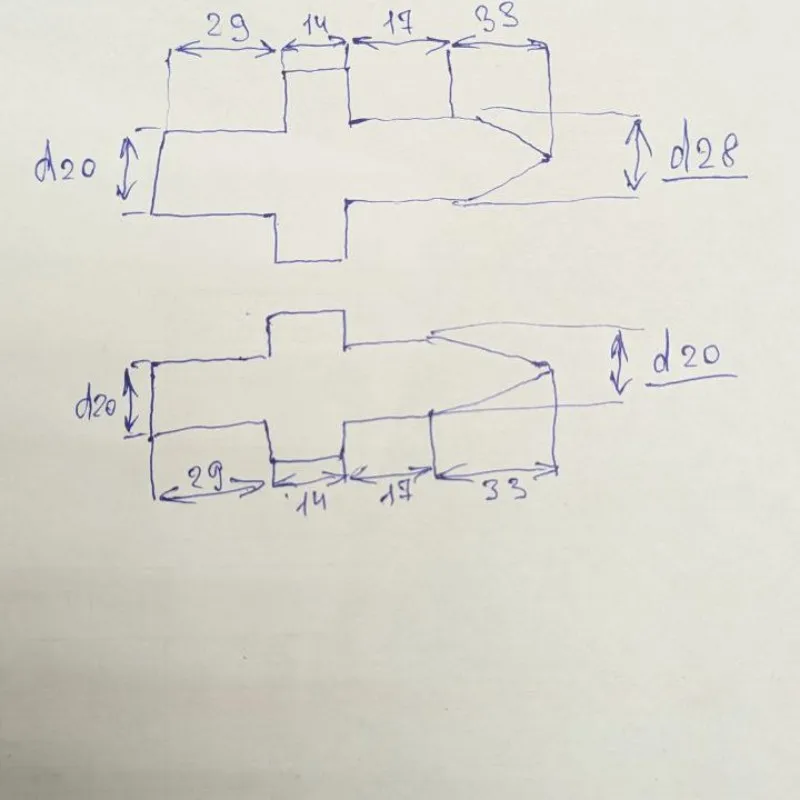 29 14 17 33
d20 d28
d20 d20
29 14 17 33